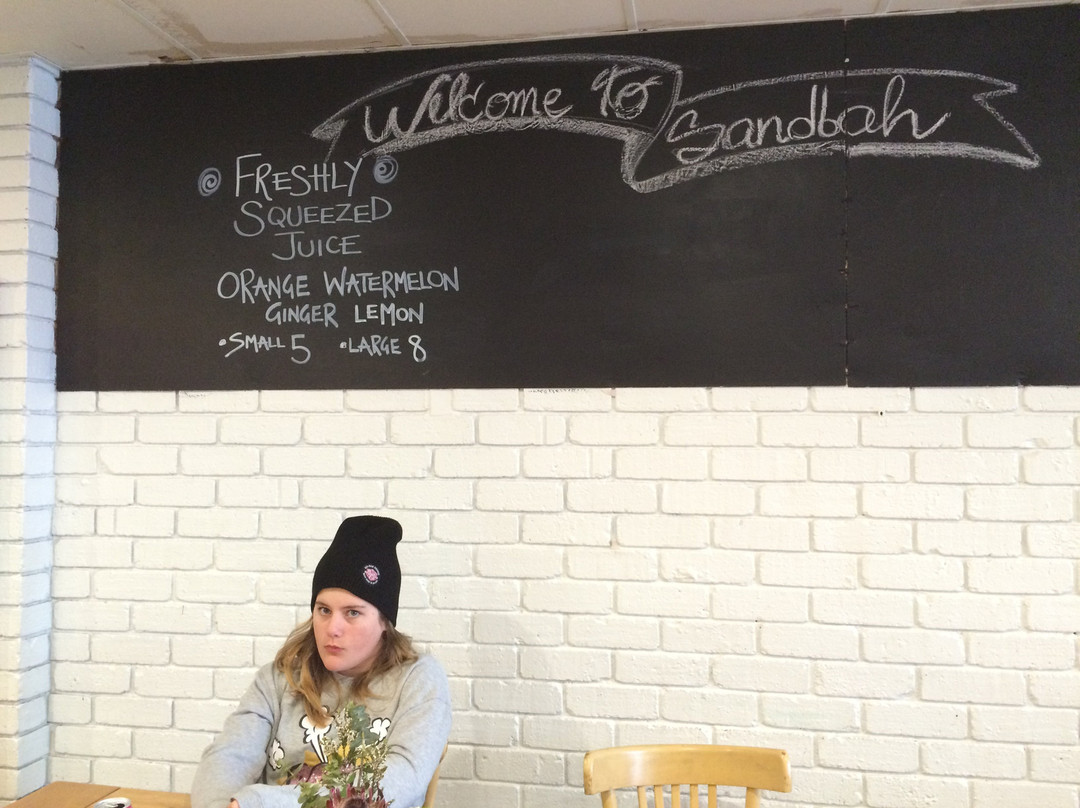 Welcome to Sandbah
FRESHLY
SQUEEZED
JUICE
ORANGE WATERMELON
GINGER LEMON
•SMALL 5 •LARGE 8